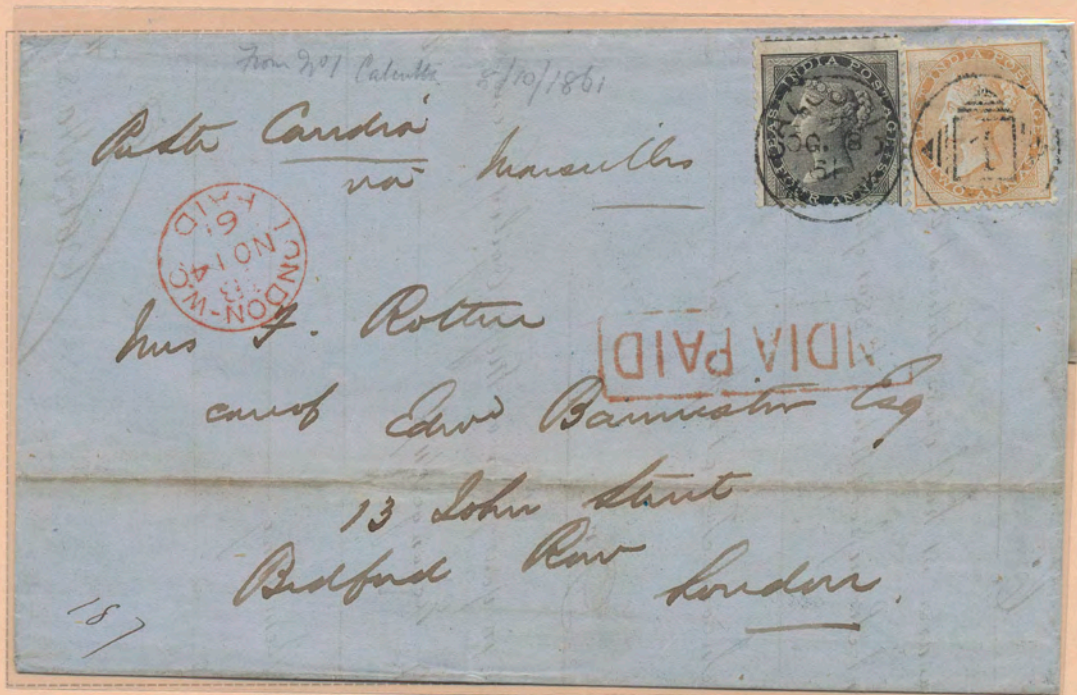 From No 1 Calcutta 8/10/1861
EAST INDIA POSTAGE
FOUR ANNAS
OC. 8
61
EAST INDIA POSTAGE
TWO ANNAS
1
Candia
via Marseilles
LONDON-W.C
NO 14
61
PAID
INDIA PAID
Mrs F. Rotton
care of Edwd Bannister Esq
13 John Street
Bedford Row
London.
187